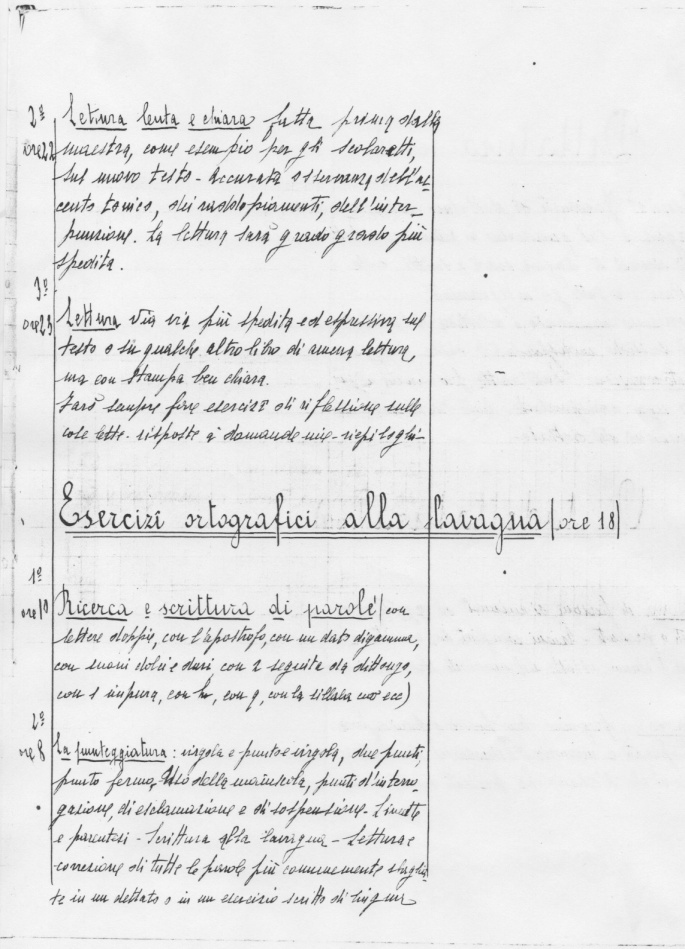 2ª Lettura lenta e chiara fatta prima dalla
ore 22 maestra, come esempio per gli scolaretti,
sul nuovo testo - Accurata osservanza dell'ac
cento tonico, dei raddopiamenti, dell'inter-
punzione. La lettura sarà grado grado più
spedita.
3ª
ore 23 Lettura via via più spedita ed espressiva sul
testo o su qualche altro libro di amena lettura,
ma con stampa ben chiara.
Farò sempre fare esercizi di riflessione sulle
cose lette - risposte a domande mie - riepiloghi -
Esercizi ortografici alla lavagna (ore 18)
1ª
ore 10 Ricerca e scrittura di parole (con
lettere doppie, con l'apostrofo, con un dato digramma,
con suoni dolci e duri, con z seguita da dittongo,
con s impura, con h, con q, con la sillaba ecc)
2ª
ore 8 La punteggiatura: virgola e punto e virgola, due punti,
punto fermo, Uso della maiuscola, punti d'interro-
gazione, di esclamazione e di sospensione - Lineette
e parentesi - Scrittura alla lavagna - Lettura e
correzione di tutte le parole più comunemente sbaglia
te in un dettato o in un esercizio scritto di lingua